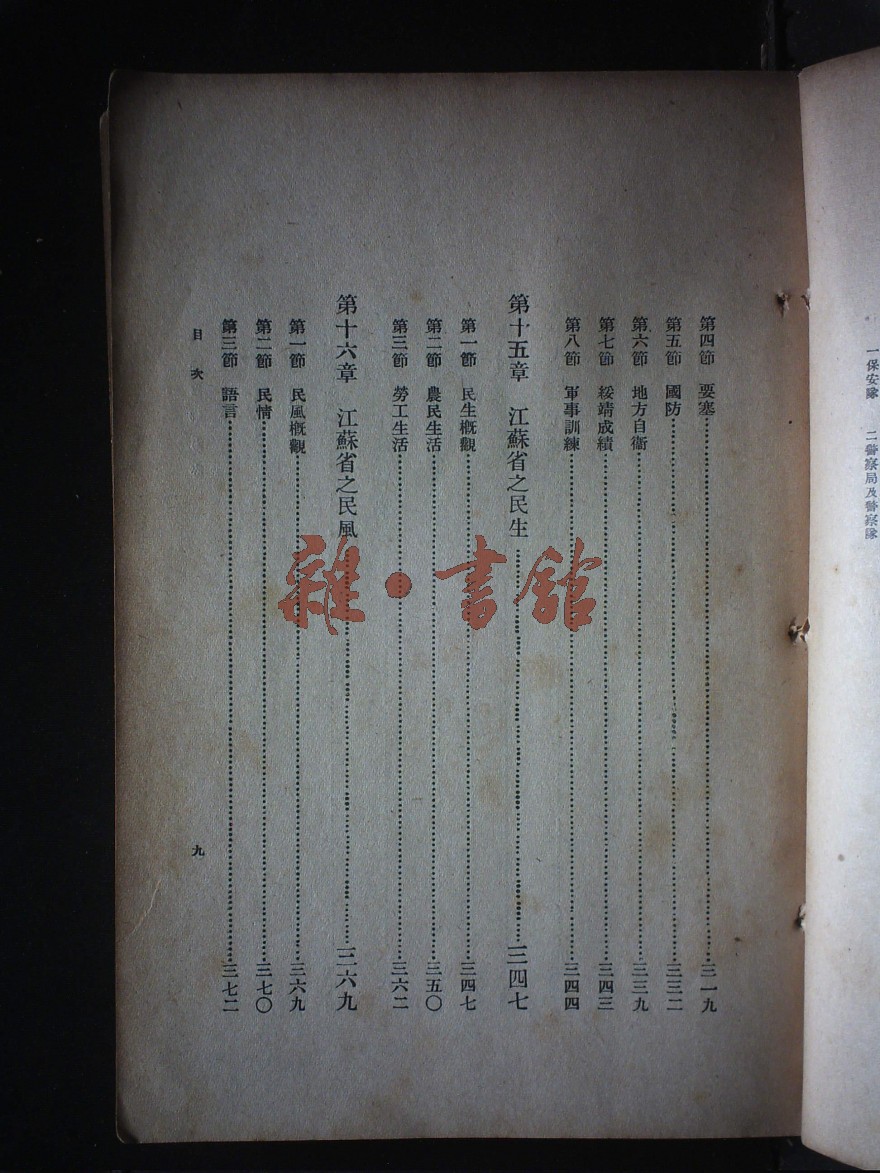 一保安隊　二警察局及警察隊
第四節　要塞……三一九
第五節　國防……三三二
第六節　地方自衞……三三九
第七節　綏靖成績……三四三
第八節　軍事訓練……三四四
第十五章　江蘇省之民生……三四七
第一節　民生概觀……三四七
第二節　農民生活……三五〇
第三節　勞工生活……三六二
第十六章　江蘇省之民風……三六九
第一節　民風概觀……三六九
第二節　民情……三七〇
第三節　語言……三七二
目次　九
雜·書館